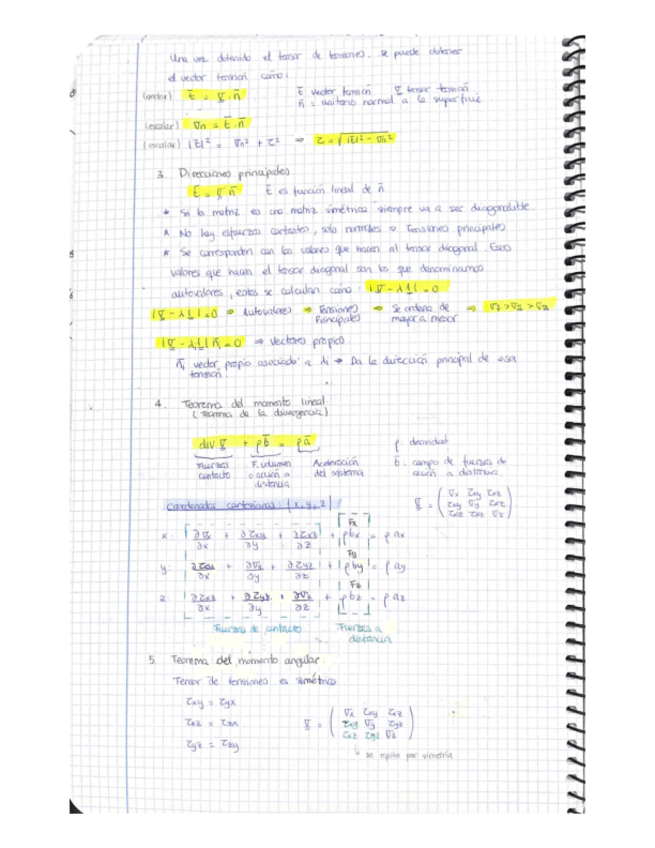 Una vez obtenido el tensor de tensiones, se puede obtener
el vector tensión como:
(vector) t̄ = σ̳ · n̄    t̄ vector tensión   σ̳ tensor tensión
n̄ = unitario normal a la superficie
(escalar) σn = t̄ · n̄
(escalar) |t̄|² = σn² + τ² ⇒ τ = √|t̄|² - σn²
3. Direcciones principales
t̄ = σ̳ · n̄    t̄ es función lineal de n̄
* Si la matriz es una matriz simétrica siempre va a ser diagonalizable.
* No hay esfuerzos cortantes, solo normales ⇒ Tensiones principales
* Se corresponden con los valores que hacen al tensor diagonal. Esos
valores que hacen el tensor diagonal son los que denominamos
autovalores, estos se calculan como: |σ̳ - λ1̳| = 0
|σ̳ - λ1̳| = 0 ⇒ Autovalores ⇒ Tensiones Principales ⇒ Se ordena de mayor a menor ⇒ σI > σII > σIII
|σ̳ - λi1̳| n̄i = 0 ⇒ Vectores propios
n̄i vector propio asociado a λi ⇒ Da la dirección principal de esa
tensión.
4. Teorema del momento lineal
(Teorema de la divergencia)
div σ̳ + ρb̄ = ρā    ρ: densidad
Fuerzas contacto   F. volumen o acción a distancia   Aceleración del sistema   b̄: campo de fuerzas de acción a distancia.
Coordenadas cartesianas {x,y,z}    σ̳ = ( σx τxy τxz
τxy σy τyz
τxz τyz σz )
Fx
x: ∂σx/∂x + ∂τxy/∂y + ∂τxz/∂z + ρbx = ρax
Fy
y: ∂τxy/∂x + ∂σy/∂y + ∂τyz/∂z + ρby = ρay
Fz
z: ∂τxz/∂x + ∂τyz/∂y + ∂σz/∂z + ρbz = ρaz
Fuerzas de contacto   Fuerzas a distancia
5. Teorema del momento angular.
Tensor de tensiones es simétrico
τxy = τyx
τxz = τzx    σ̳ = ( σx τxy τxz
τxy σy τyz
τxz τyz σz )
τyz = τzy
↳ se repite por simetría